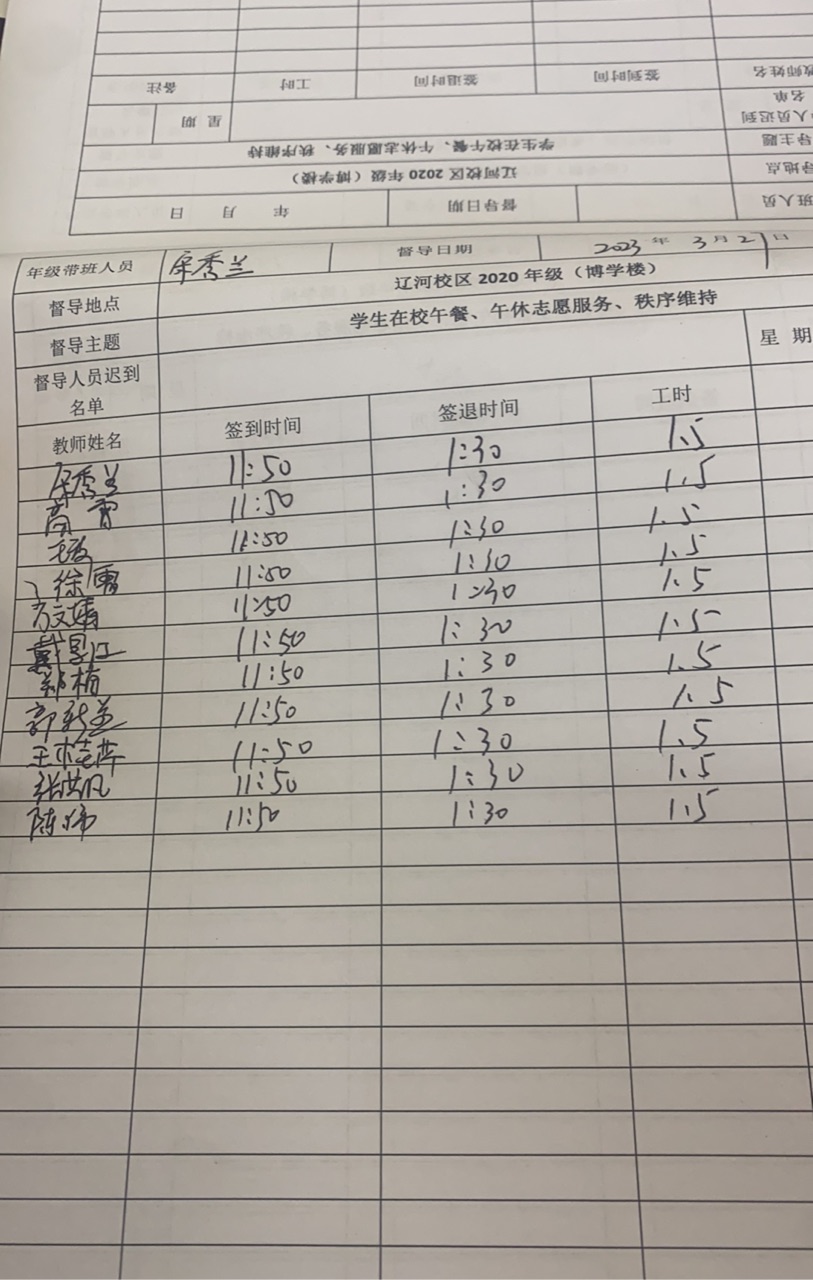 备注 工时 签退时间 签到时间 教师姓名
星 期 人员迟到
名单
学生在校午餐、午休志愿服务、秩序维持 导主题
辽河校区 2020 年级（博学楼） 导地点
年 月 日 督导日期 班人员
年级带班人员 秀兰 督导日期 2023 年 3 月 21 日
督导地点 辽河校区 2020 年级（博学楼）
督导主题 学生在校午餐、午休志愿服务、秩序维持
督导人员迟到
名单 星 期
教师姓名 签到时间 签退时间 工时
秀兰 11:50 1:30 1.5
高雪 11:50 1:30 1.5
11:50 1:30 1.5
徐 11:50 1:30 1.5
方文婧 11:50 1:30 1.5
戴 11:50 1:30 1.5
郑梅 11:50 1:30 1.5
郭 11:50 1:30 1.5
王 11:50 1:30 1.5
张 11:50 1:30 1.5
陈 11:50 1:30 1.5